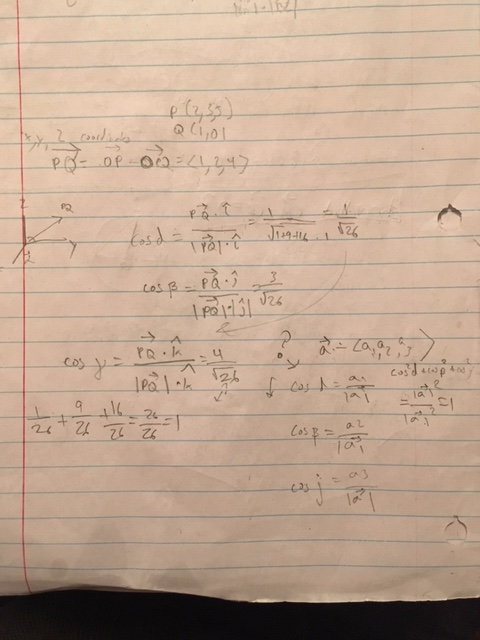 P(2,3,5)
Q(1,0,1
x, y, z coordinates
PQ = OP - OQ = ⟨1,3,4⟩
z
PQ
y
cos α = PQ · î / |PQ| · î = 1 / √1+9+16 · 1 = 1/√26
cos β = PQ · ĵ / |PQ| · |ĵ| = 3/√26
cos γ = PQ · k̂ / |PQ| · k̂ = 4/√26
1/26 + 9/26 + 16/26 = 26/26 = 1
?
a = ⟨a₁ a₂ a₃⟩
cos α = a₁/|a|
cos²α + cos²β + cos²
= |a|²/|a|² = 1
cos β = a2/|a|
cos j = a3/|a|